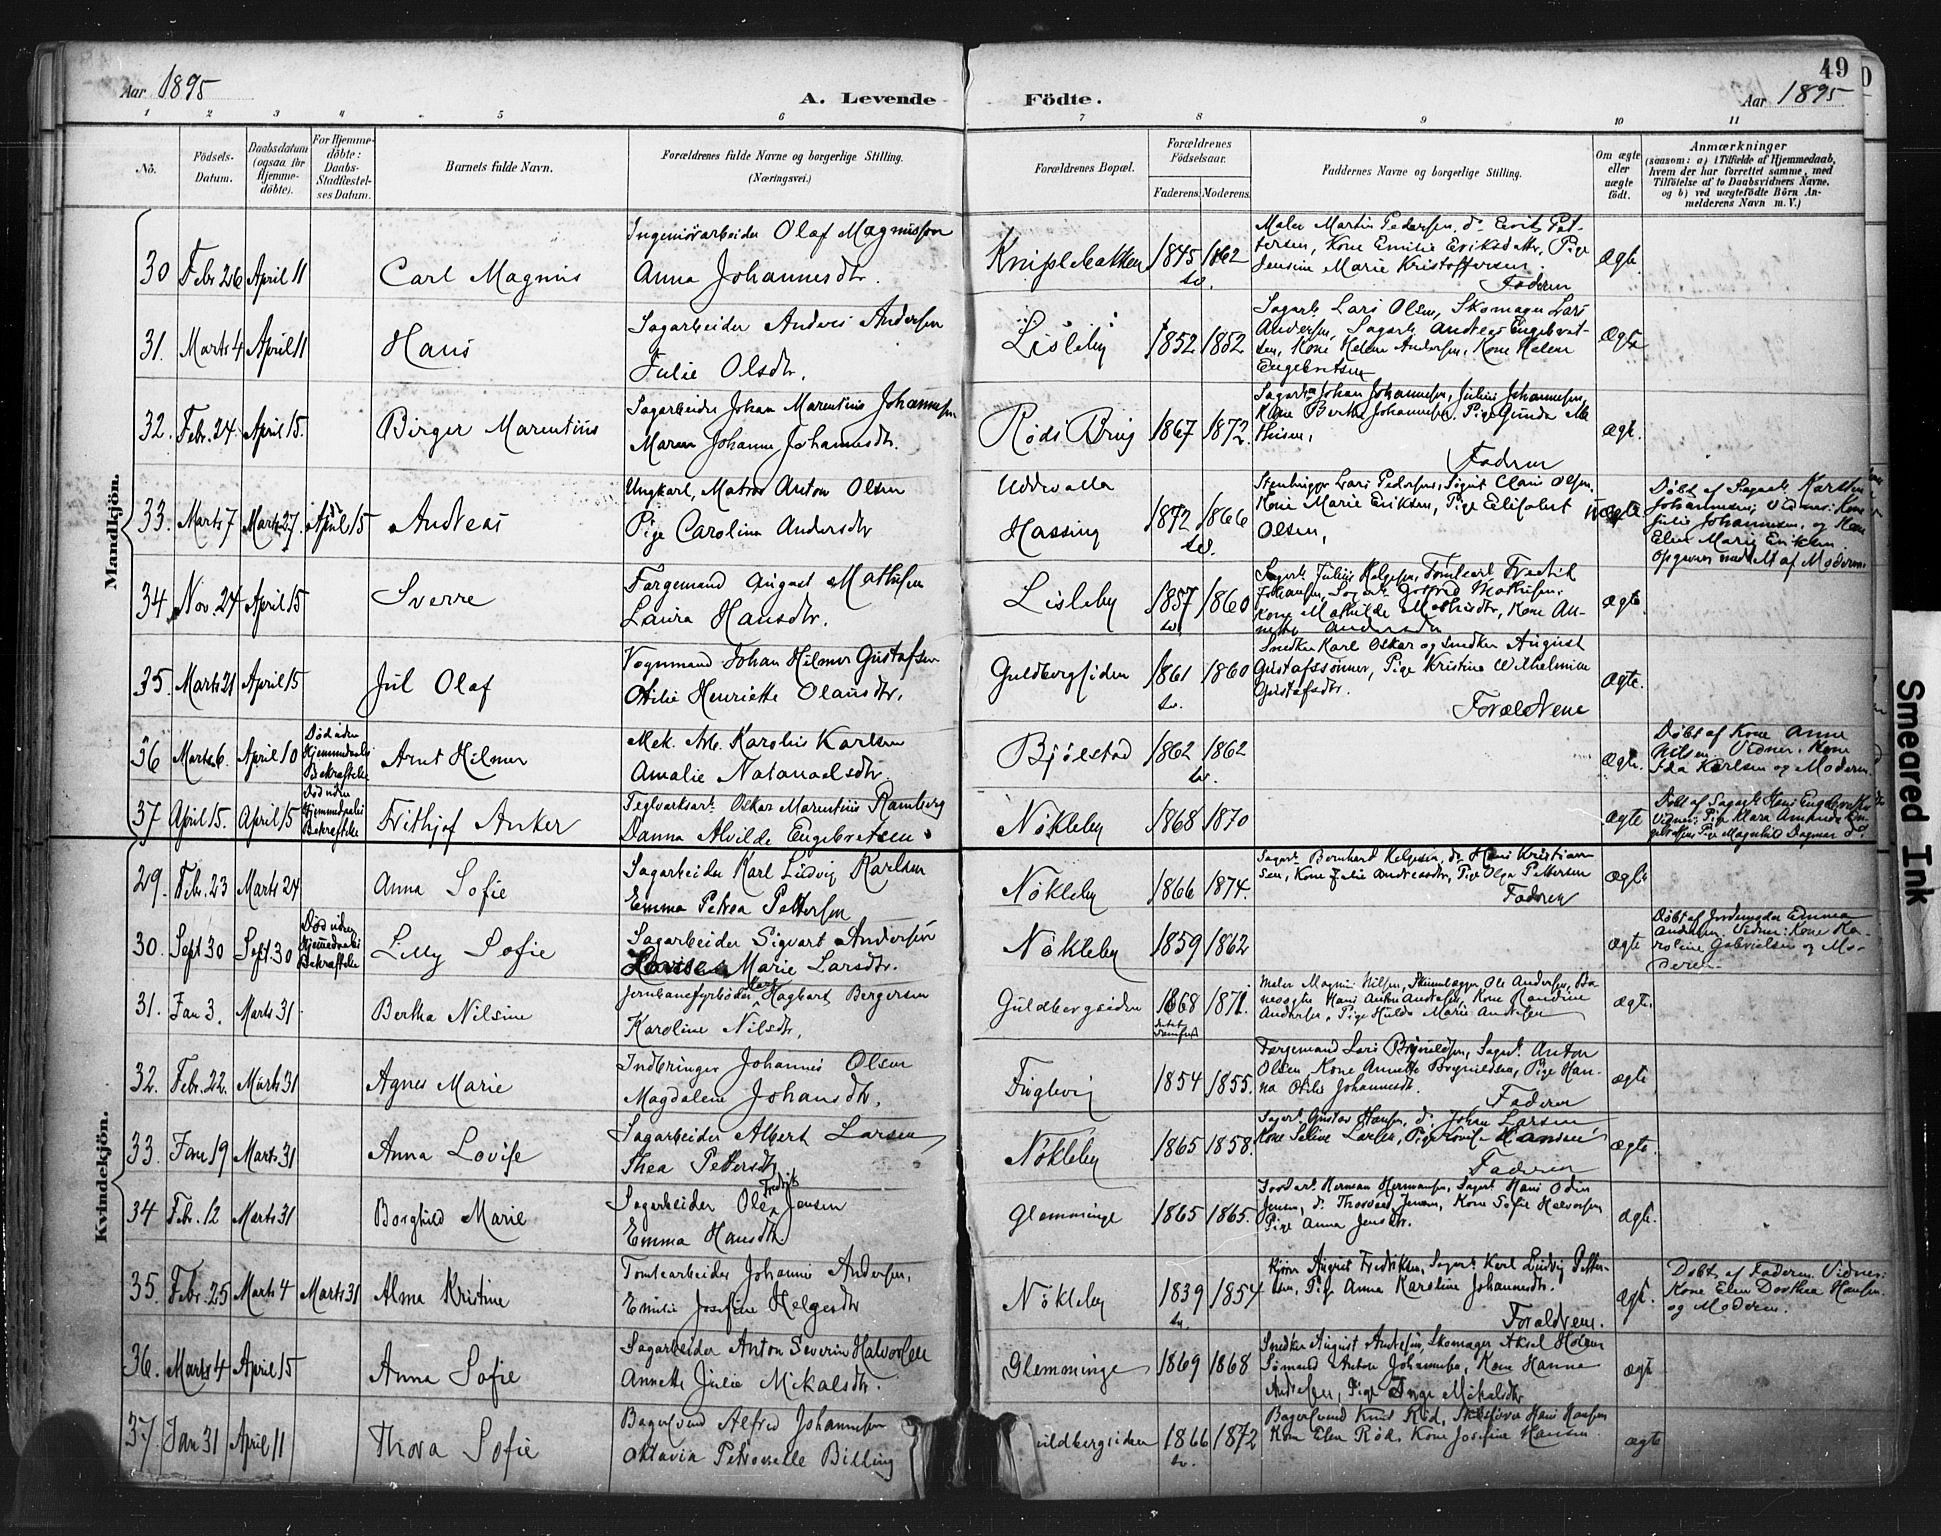 49
Aar 1895
A. Levende Födte.
Aar 1895
1 2 3 4 5 6 7 8 9 10 11
No.
Födsels-Datum.
Daabsdatum (ogsaa for Hjemme-döbte).
For Hjemme-döbte: Daabs-Stadfæstel-ses Datum.
Barnets fulde Navn.
Forældrenes fulde Navne og borgerlige Stilling.
(Næringsvei.)
Forældrenes Bopæl.
Forældrenes Födselsaar.
Faderens Moderens
Faddernes Navne og borgerlige Stilling.
Om ægte eller uægte födt.
Anmærkninger
(saasom: a) i Tilfælde af Hjemmedaab, hvem der har forrettet samme, med Tilföielse af to Daabsvidners Navne, og b) ved uægtefödte Börn Anmelderens Navn m. V.)
Mandkjön.
30 Febr 26 April 11 Carl Magnus
Ingeniörarbeider Olaf Magnusson
Anna Johannesdtr.
Kniplebakken 1845 1862
sv.
Maler Martin Pedersen, do Evit Pet-
tersen, Kone Emilie Eriksdattr, Pige
Jensine Marie Kristoffersen.
Faderen
ægte.
31. Marts 4 April 11 Hans
Sagarbeider Anders Andersen
Julie Olsdtr.
Lisleby 1852 1852
Sagarb. Lars Olsen, Skomager Lars
Andersen, Sagarb. Andreas Engebret-
sen, Kone Helene Andersen, Kone Helene
Engebretsen
ægte
32. Febr. 24. April 15. Birger Marentius
Sagarbeider Johan Marentius Johannesen
Maren Johanne Johannesdtr.
Röds Brug 1867 1872.
Sagarb. Johan Johannesen, Julius Johannesen,
Kone Berthe Johannesen, Pige Gunda Ma-
thisen,
Faderen
ægte.
33. Marts 7 Marts 27. April 15 Andreas
Ungkarl, Matros Anton Olsen
Pige Carolina Andersdtr
Uddevalla
Hassing 1872 1866
sv.
Stenhugger Lars Pedersen, Sigurt Claus Olsen,
Kone Marie Eriksen, Pige Elisabet
Olsen,
uægte
Döbt af Sagarb. Karsten
Johannesen; Vidner: Kone
Julie Johannesen, og Kone
Elen Marie Eriksen
Opgiven ved Att af Moderen
34 Nov 24 April 15 Sverre
Færgemand August Mathisen
Laura Hansdtr.
Lisleby 1857 1860
sv.
Sagarb. Julius Helgesen, Tomtearb. Fredrik
Johansen, Sagarb. Gotfred Mathisen,
Kone Mathilde Mathisdtr, Kone An-
nette Andersdtr
ægte
35. Marts 21 April 15 Jul Olaf
Vognmand Johan Hilmer Gustafsen
Otilie Henriette Olausdtr.
Guldbergsiden 1861 1860
sv.
Snedker Karl Oskar og Snedker August
Gustafssönner, Pige Kristine Wilhelmine
Gustafsdtr.
Forældrene
ægte.
36 Marts 6. April 10
Död uden Hjemmedaabs Bekræftelse
Arnt Hilmer
Mek. Arb. Karolius Karlsen
Amalie Natanaelsdtr.
Bjölstad 1862 1862
sv.
ægte.
Döbt af Kone Anne
Nilsen. Vidner: Kone
Ida Karlsen og Moderen
37 April 15. April 15
Död uden Hjemmedaabs Bekræftelse
Frithjof Anker
Teglværksarb. Oskar Marentius Ramberg
Danna Alvilde Engebretsen
Nökleby 1868 1870
ægte
Döbt af Sagarb. Hans Engebretsen
Vidner: Pige Klara Amanda En-
gebretsen, Pige Magnhild Dagmar do
Kvindekjön.
29. Febr. 23 Marts 24 Anna Sofie
Sagarbeider Karl Ludvig Karlsen
Emma Petrea Pettersen
Nökleby 1866 1874.
Sagarb. Bernhard Helgesen, do Hans Kristian-
sen, Kone Julie Andreasdtr, Pige Olga Pettersen
Faderen
ægte
30. Sept 30 Sept. 30
Död uden Hjemmedaabs Bekræftelse
Lilly Sofie
Sagarbeider Sigvart Andersen
Lovise Marie Larsdtr.
Nökleby 1859 1862
ægte
Döbt af Jordemoder Emma
Andersen. Vidner: Kone Ka-
roline Gabrielsen og Mo-
deren.
31. Jan 3. Marts 31 Bertha Nilsine
Jernbanefyrböder Karl Hagbart Bergersen
Karoline Nilsdtr.
Guldbergsiden 1868 1871.
Maler Magnus Nilsen, Stenhugger Ole Andersen, Ba-
nevogter Hans Anton Andresen, Kone Randine
Andersen, Pige Hulda Marie Andersen
ægte.
32. Febr. 22. Marts 31 Agnes Marie
Indbringer Johannes Olsen
Magdalene Johansdtr.
Fuglevig 1854 1855.
Færgemand Lars Brynildsen, Sagarb. Anton
Olsen, Kone Annette Brynildsen, Pige Han-
na Otilie Johannesdtr.
Faderen
ægte
33. Jan 19 Marts 31 Anna Lovise
Sagarbeider Albert Larsen
Thea Pettersdtr
Nökleby 1865 1858.
Sagarb. Gustav Hansen, do. Johan Larsen
Kone Seline Larsen, Pige Lovise Hansen
Faderen
ægte.
34 Febr. 12 Marts 31 Borghild Marie
Sagarbeider Ole Fredrik Jensen
Emma Hansdtr
Glemminge 1865 1865.
Jordarb. Herman Hermansen, Sagarb Hans Oden
Jensen, do. Thorvald Jensen, Kone Sofie Halvorsen
Pige Anna Jensdtr.
ægte.
35. Febr. 25 Marts 4 Marts 31 Alma Kristine
Tomtearbeider Johannes Andersen,
Emilie Josefine Helgesdtr
Nökleby 1839 1854
sv.
Kjörer August Fredriksen, Sagarb. Karl Ludvig Petter-
sen, Pige Anna Karoline Johannesdtr.
Forældrene.
ægt.
Döbt af Faderen. Vidner:
Kone Elen Dorthea Hansen
og Moderen.
36. Marts 4 April 15 Anna Sofie
Sagarbeider Anton Severin Halvorsen
Annette Julie Mikalsdtr.
Glemminge 1869 1868
Snedker August Andresen, Skomager Aksel Holmen
Sömand Anton Johannesen, Kone Hanna
Andresen, Pige Inga Mikalsdtr
ægte
37. Jan 31 April 11 Thora Sofie
Bagersvend Alfred Johannesen
Oktavia Petronelle Billing
uldbergsiden 1866 1872
sv.
Bagersvend Knut Röd, Hans Hansen
Kone Elen Röd, Kone Josefine Hansen
ægte
Smeared Ink